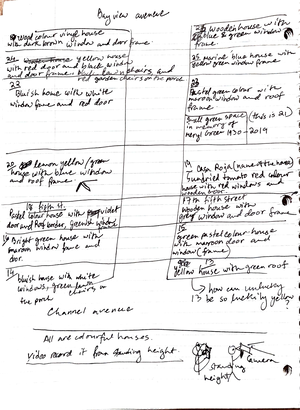 Bay view avenue
wood colour vinyl house
with dark brown window and door frame
yellow house
with red door and black window
and door frame. lawn chairs and
red garden chairs on the porch
22
Bluish house with white
window frame and red door
20 lemon yellow/green
house with blue window
and roof frame
18 fifth st.
Pastel colour house with violet
door and roof border, greenish window
16 Bright green house with
maroon window frame and
door.
14
bluish house with white
windows, green lawn
chairs on
the porch
Wooden house with
blue & green window
frame
25 marine blue house with
golden green window frame
23
Pastel green colour with
maroon window and roof
frame
Small green space (this is 21)
in memory of
Meryl Green 1930-2019
19 Casa Roja (name of the home)
Sundried tomato red colour
house with red windows and
wooden door
17 fifth street
Wooden house with
grey window and door frame
15
green pastel colour house
with maroon door and
window (frame)
13
yellow house with green roof
how can unlucky
13 be so luckily yellow?
Channel avenue
All are colourful houses.
Video record it from standing height.
camera
standing
height